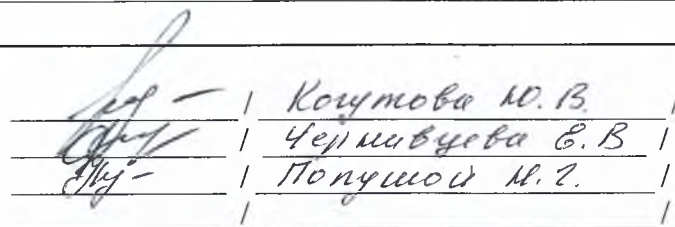 | Когутова Ю. В. |
| Чернивцева Е. В |
| Попушой Н. Г. |